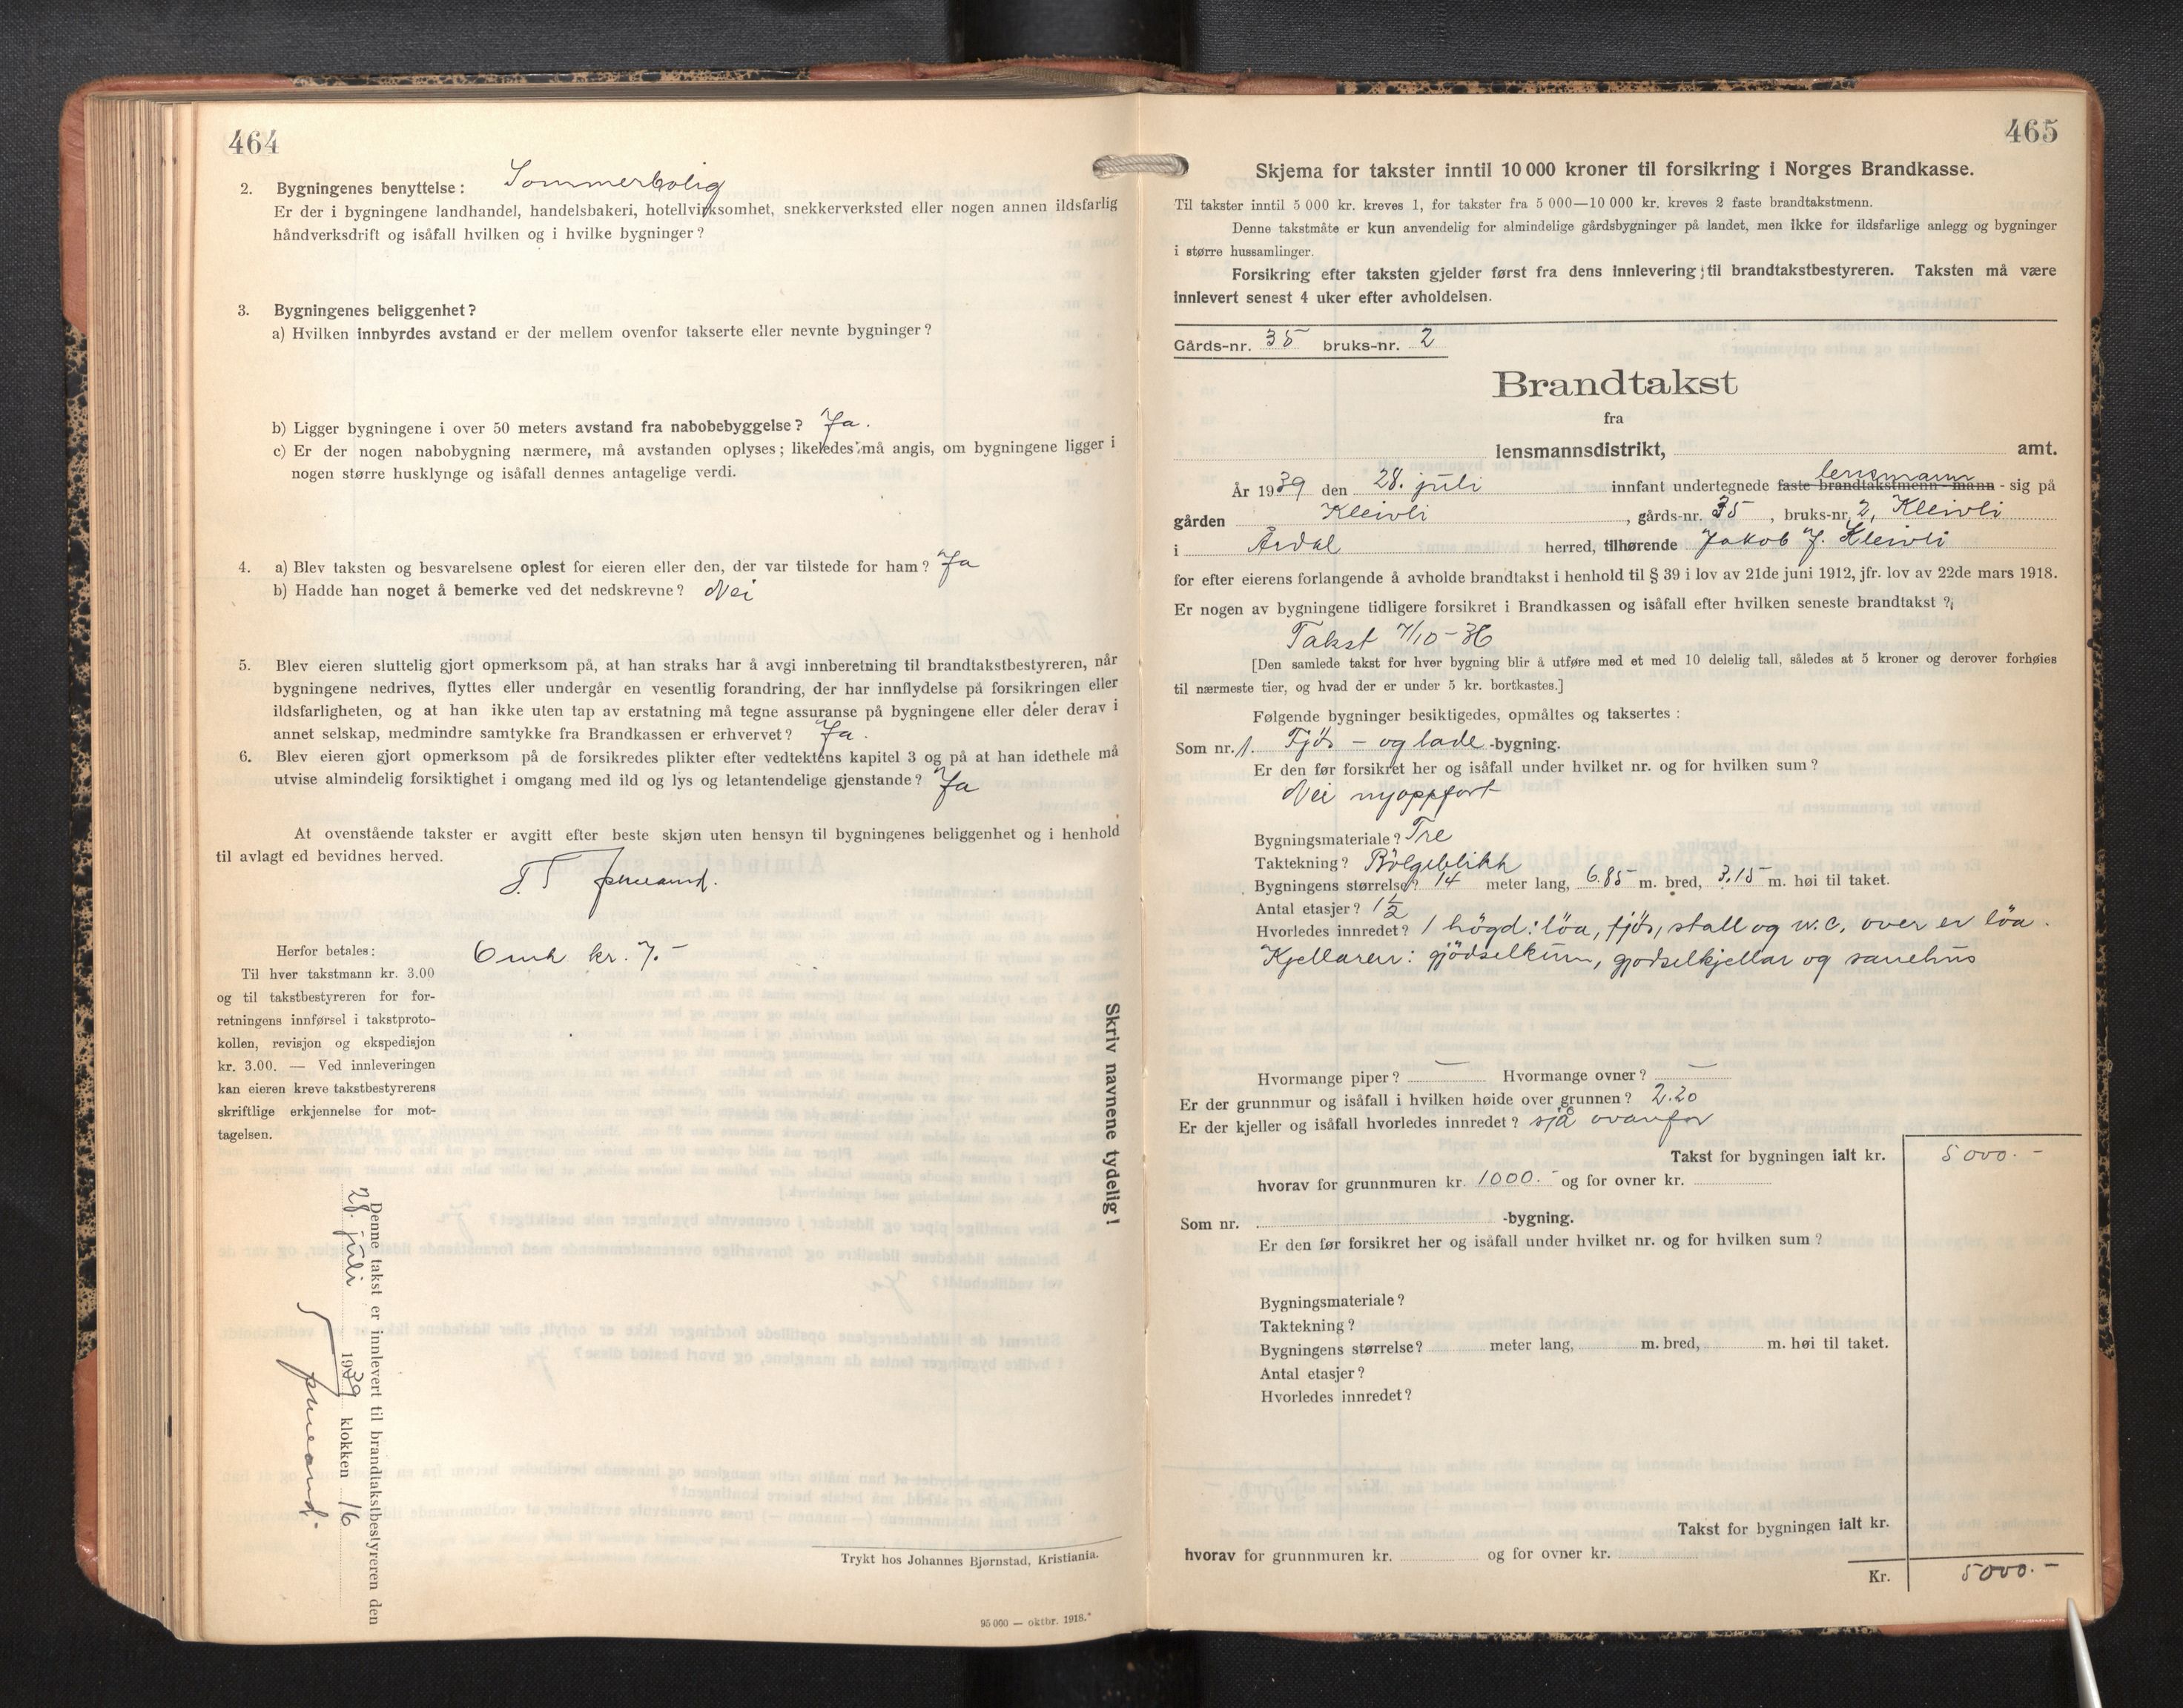 464
2. Bygningenes benyttelse: Sommerbolig
Er der i bygningene landhandel, handelsbakeri, hotellvirksomhet, snekkerverksted eller nogen annen ildsfarlig
håndverksdrift og isåfall hvilken og i hvilke bygninger?
3. Bygningenes beliggenhet?
a) Hvilken innbyrdes avstand er der mellem ovenfor takserte eller nevnte bygninger?
b) Ligger bygningene i over 50 meters avstand fra nabobebyggelse? Ja.
c) Er der nogen nabobygning nærmere, må avstanden oplyses; likeledes må angis, om bygningene ligger i
nogen større husklynge og isåfall dennes antagelige verdi.
4. a) Blev taksten og besvarelsene oplest for eieren eller den, der var tilstede for ham? Ja
b) Hadde han noget å bemerke ved det nedskrevne? Nei
5. Blev eieren sluttelig gjort opmerksom på, at han straks har å avgi innberetning til brandtakstbestyreren, når
bygningene nedrives, flyttes eller undergår en vesentlig forandring, der har innflydelse på forsikringen eller
ildsfarligheten, og at han ikke uten tap av erstatning må tegne assuranse på bygningene eller deler derav i
annet selskap, medmindre samtykke fra Brandkassen er erhvervet? Ja.
6. Blev eieren gjort opmerksom på de forsikredes plikter efter vedtektens kapitel 3 og på at han idethele må
utvise almindelig forsiktighet i omgang med ild og lys og letantendelige gjenstande? Ja
At ovenstående takster er avgitt efter beste skjøn uten hensyn til bygningenes beliggenhet og i henhold
til avlagt ed bevidnes herved.
Herfor betales:
Til hver takstmann kr. 3.00
og til takstbestyreren for for-
retningens innførsel i takstproto-
kollen, revisjon og ekspedisjon
kr. 3.00. — Ved innleveringen
kan eieren kreve takstbestyrerens
skriftlige erkjennelse for mot-
tagelsen.
Omk kr. 7.-
Skriv navnene tydelig!
Denne takst er innlevert til brandtakstbestyreren den
28. juli 1939 klokken 16
Trykt hos Johannes Bjørnstad, Kristiania.
95 000 — oktbr. 1918.
465
Skjema for takster inntil 10 000 kroner til forsikring i Norges Brandkasse.
Til takster inntil 5 000 kr. kreves 1, for takster fra 5 000—10 000 kr. kreves 2 faste brandtakstmenn.
Denne takstmåte er kun anvendelig for almindelige gårdsbygninger på landet, men ikke for ildsfarlige anlegg og bygninger
i større hussamlinger.
Forsikring efter taksten gjelder først fra dens innlevering til brandtakstbestyreren. Taksten må være
innlevert senest 4 uker efter avholdelsen.
Gårds-nr. 35 bruks-nr. 2
Brandtakst
fra
lensmannsdistrikt, amt.
lensmann
År 1939 den 28. juli innfant undertegnede faste brandtakstmenn - mann - sig på
gården Kleivli, gårds-nr. 35, bruks-nr. 2, Kleivli
i Årdal herred, tilhørende Jakob J. Kleivli
for efter eierens forlangende å avholde brandtakst i henhold til § 39 i lov av 21de juni 1912, jfr. lov av 22de mars 1918.
Er nogen av bygningene tidligere forsikret i Brandkassen og isåfall efter hvilken seneste brandtakst?
Takst 7/10-36
[Den samlede takst for hver bygning blir å utføre med et med 10 delelig tall, således at 5 kroner og derover forhøies
til nærmeste tier, og hvad der er under 5 kr. bortkastes.]
Følgende bygninger besiktigedes, opmåltes og taksertes:
Som nr. 1. Fjös - og lade -bygning.
Er den før forsikret her og isåfall under hvilket nr. og for hvilken sum?
Nei nyoppfört
Bygningsmateriale? Tre
Taktekning? Bölgeblikk
Bygningens størrelse? 14 meter lang, 6.85 m. bred, 3.15 m. høi til taket.
Antal etasjer? 1 1/2
Hvorledes innredet? 1 högd: löa, fjös, stall og w.c. over er löa.
Kjellaren: gjödselkum, gjödselkjellar og sauehus
Hvormange piper? — Hvormange ovner? —
Er der grunnmur og isåfall i hvilken høide over grunnen? 2.20
Er der kjeller og isåfall hvorledes innredet? sjå ovanfor
Takst for bygningen ialt kr. 5000.-
hvorav for grunnmuren kr. 1000.- og for ovner kr.
Som nr. -bygning.
Er den før forsikret her og isåfall under hvilket nr. og for hvilken sum?
Bygningsmateriale?
Taktekning?
Bygningens størrelse? meter lang, m. bred, m. høi til taket.
Antal etasjer?
Hvorledes innredet?
Takst for bygningen ialt kr.
hvorav for grunnmuren kr. og for ovner kr.
Kr. 5000.-